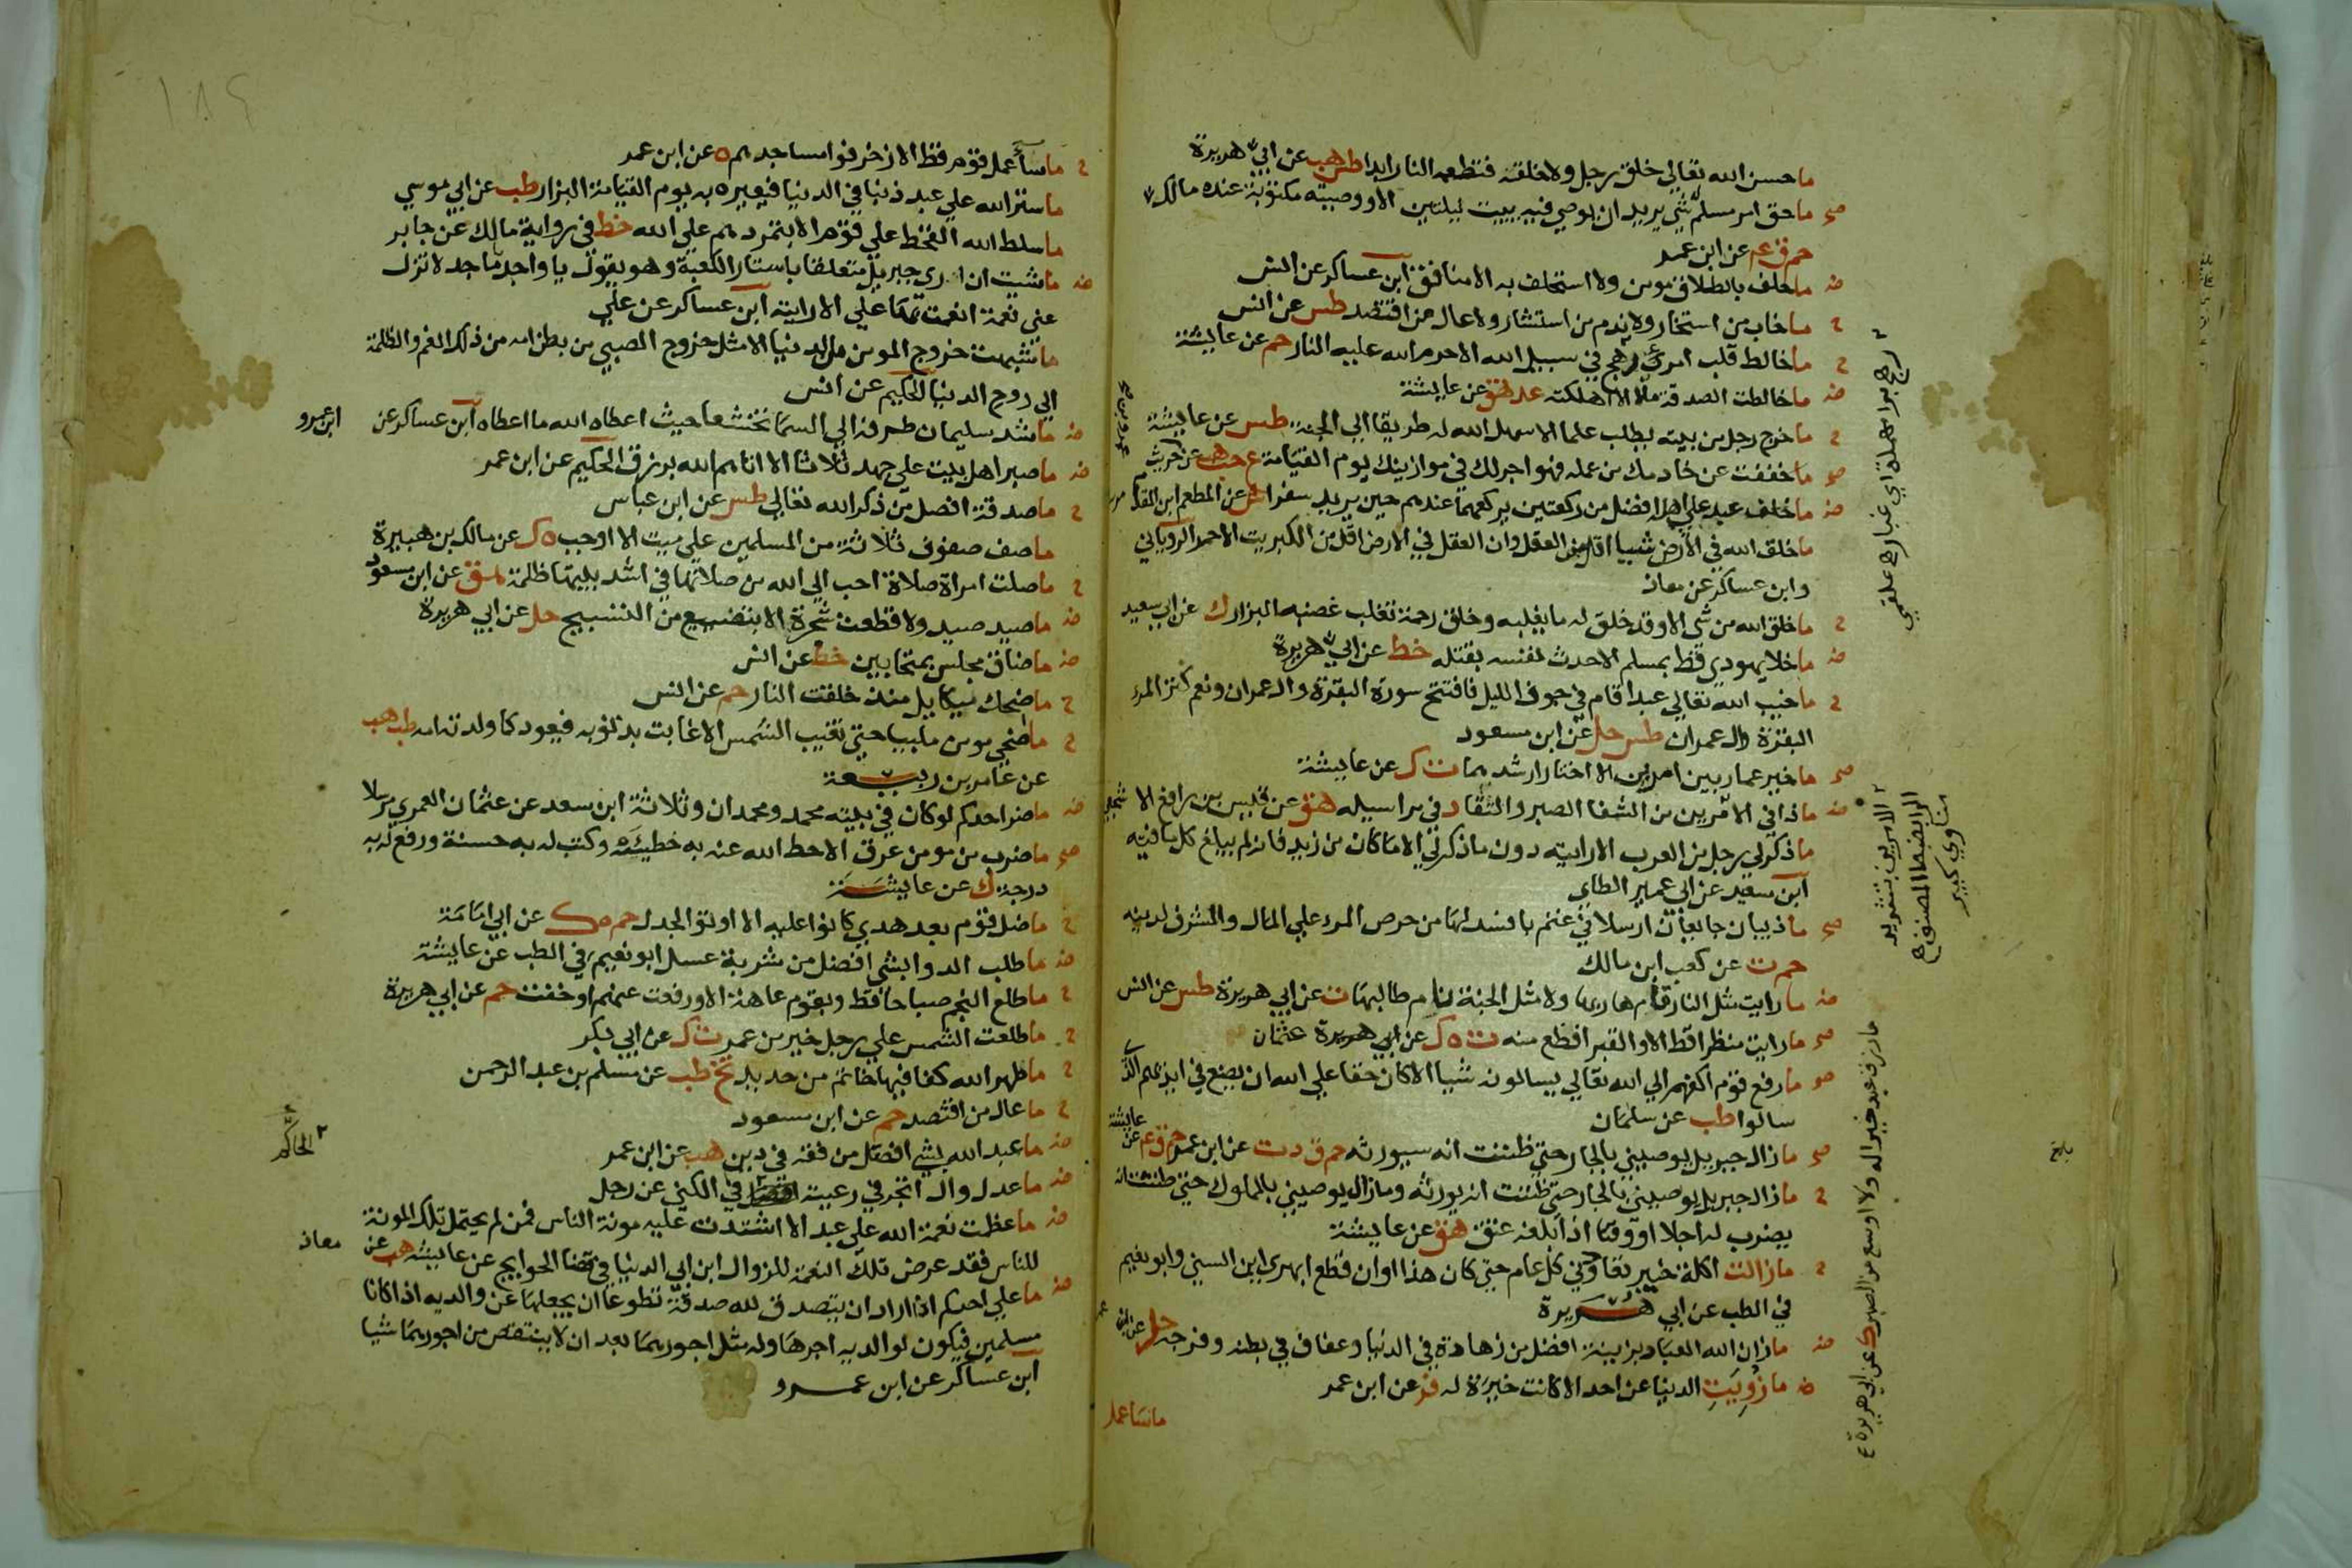 ما حسن الله تعالى خلق رجل ولا خلقه فتطعمه النار ابدا طس هب عن ابي هريرة
صح ما حق امر مسلم له شي يريد ان يوصي فيه يبيت ليلتين الا ووصيته مكتوبة عنده مالك
حم ق عم عن ابن عمر
ض ما حلف بالطلاق مومن ولا استحلف به الا منافق ابن عساكر عن انس
ح ما خاب من استخار ولا ندم من استشار ولا عال من اقتصد طس عن انس
ح ما خالط قلب امرئ رهج في سبيل الله الا حرم الله عليه النار حم عن عايشة
ض ما خالطت الصدقة مالا الا اهلكته عد هق عن عايشة
ح ما خرج رجل من بيته يطلب علما الا سهل الله له طريقا الي الجنة طس عن عايشة
صح ما خففت عن خادمك من عمله فهو اجر لك في موازينك يوم القيامة ع حب هب عن عمرو بن حريث
ض ما خلف عبد علي اهله افضل من ركعتين يركعهما عندهم حين يريد سفرا ش عن المطعم ابن المقدام مرسلا
ما خلق الله في الارض شيا اقل من العقل وان العقل في الارض اقل من الكبريت الاحمر الروياني
وابن عساكر عن معاذ
ح ما خلق الله من شي الا وقد خلق له ما يغلبه وخلق رحمة تغلب غضبه البزار ك عن ابي سعيد
ض ما خلا يهودي قط بمسلم الا حدث نفسه بقتله خط عن ابي هريرة
ح ما خيب الله تعالي عبدا قام في جوف الليل فافتتح سورة البقرة وال عمران ونعم كنز المرء
البقرة وال عمران طس حل عن ابن مسعود
صح ما خير عمار بين امرين الا اختار ارشدهما ت ك عن عايشة
ض ما ذا في الامرين من الشفا الصبر والثفا د في مراسيله هق عن قيس بن رافع الاشجعي
ما ذكر لي رجل من العرب الا رايته دون ما ذكر لي الا ما كان من زيد فانه لم يبلغ كل ما فيه
ابن سعد عن ابي عمير الطاي
صح ما ذيبان جايعان ارسلا في غنم بافسد لها من حرص المرء علي المال والشرف لدينه
حم ت عن كعب ابن مالك
ض ما رايت مثل النار نام هاربها ولا مثل الجنة نام طالبها ت عن ابي هريرة طس عن انس
صح ما رايت منظرا قط الا والقبر افظع منه ت ه ك عن عثمان
صح ما رفع قوم اكفهم الي الله تعالي يسالونه شيا الا كان حقا علي الله ان يضع في ايديهم الذي
سالوا طب عن سلمان
صح ما زال جبريل يوصيني بالجار حتي ظننت انه سيورثه حم ق د ت عن ابن عمر حم ق عم عن عايشة
ح ما زال جبريل يوصيني بالجار حتي ظننت انه يورثه وما زال يوصيني بالمملوك حتي ظننت انه
يضرب له اجلا او وقتا اذا بلغه عتق هق عن عايشة
ح ما زالت اكلة خيبر تعاودني كل عام حتي كان هذا اوان قطع ابهري ابن السني وابو نعيم
في الطب عن ابي هريرة
ض ما زان الله العباد بزينة افضل من زهادة في الدنيا وعفاف في بطنه وفرجه حل عن ابن عمر
ض ما زويت الدنيا عن احد الا كانت خيرة له فر عن ابن عمر
ما سا عمل
رهج براء مهملة اي غبار
الامرين بتشديد
الراء بضبط المصنف
مناوي كبير
ما رزق عبد خيرا له ولا اوسع من الصبر ك عن ابي هريرة
١٨٩
ح ما سا عمل قوم قط الا زخرفوا مساجدهم ه عن ابن عمر
ما ستر الله علي عبد ذنبا في الدنيا فيعيره به يوم القيامة البزار طب عن ابي موسي
ما سلط الله القحط علي قوم الا بتمردهم علي الله خط في رواية مالك عن جابر
ض ما شيت ان اري جبريل متعلقا باستار الكعبة وهو يقول يا واجد يا ماجد لا تزل
عني نعمة انعمت بها علي الا رايته ابن عساكر عن علي
ما شبهت خروج المومن من الدنيا الا مثل خروج الصبي من بطن امه من ذلك الغم والظلمة
الي روح الدنيا الحكيم عن انس
ض ما شد سليمان طرفه الي السما تخشعا حيث اعطاه الله ما اعطاه ابن عساكر عن ابن عمرو
ض ما صبر اهل بيت علي جهد ثلاثا الا اتاهم الله برزق الحكيم عن ابن عمر
ح ما صدقة افضل من ذكر الله تعالي طس عن ابن عباس
ما صف صفوف ثلاثة من المسلمين علي ميت الا اوجب ه ك عن مالك بن هبيرة
ح ما صلت امراة صلاة احب الي الله من صلاتها في اشد بيتها ظلمة هق عن ابن مسعود
ض ما صيد صيد ولا قطعت شجرة الا بتضييع من التسبيح حل عن ابي هريرة
ض ما ضاق مجلس بمتحابين خط عن انس
ح ما ضحك ميكاييل منذ خلقت النار حم عن انس
ح ما ضحي مومن ملبيا حتي تغيب الشمس الا غابت بذنوبه فيعود كما ولدته امه طب هب
عن عامر بن ربيعة
ض ما ضر احدكم لو كان في بيته محمد ومحمدان وثلاثة ابن سعد عن عثمان العمري مرسلا
صح ما ضرب من مومن عرق الا حط الله عنه به خطيئة وكتب له به حسنة ورفع له به
درجة ك عن عايشة
ح ما ضل قوم بعد هدي كانوا عليه الا اوتوا الجدل حم ت ه ك عن ابي امامة
ض ما طلب الدوا بشي افضل من شربة عسل ابو نعيم في الطب عن عايشة
ح ما طلع النجم صباحا قط وبقوم عاهة الا ورفعت عنهم او خفت حم عن ابي هريرة
ح ما طلعت الشمس علي رجل خير من عمر ت ك عن ابي بكر
ح ما طهر الله كفا فيها خاتم من حديد تخ طب عن مسلم بن عبد الرحمن
ح ما عال من اقتصد حم عن ابن مسعود
ض ما عبد الله بشي افضل من فقه في دين هب عن ابن عمر
ض ما عدل وال اتجر في رعيته الحاكم في الكني عن رجل
ض ما عظمت نعمة الله علي عبد الا اشتدت عليه مونة الناس فمن لم يحتمل تلك المونة
للناس فقد عرض تلك النعمة للزوال ابن ابي الدنيا في قضا الحوايج عن عايشة هب عن معاذ
ض ما علي احدكم اذا اراد ان يتصدق لله صدقة تطوعا ان يجعلها عن والديه اذا كانا
مسلمين فيكون لوالديه اجرها وله مثل اجورهما بعد ان لا ينتقص من اجورهما شيا
ابن عساكر عن ابن عمرو